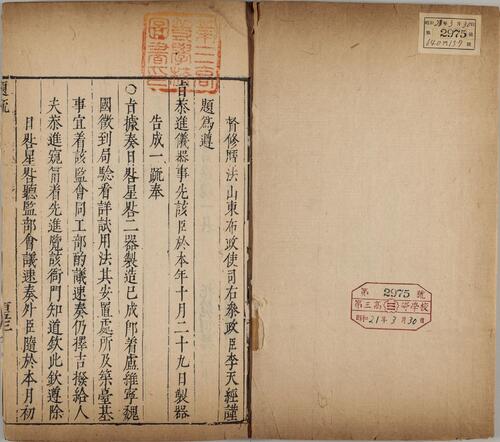 督修曆法山東布政使司右叅政臣李天經謹
題為遵
旨恭進儀器事先該臣於本年十月二十九日製器
告成一疏奉
○旨據奏日晷星晷二器製造已成卽着盧維寧魏
國徵到局驗看詳試用法其安置處所及築臺基
事宜着該監會同工部酌議速奏仍擇吉撥給人
夫恭進窺筩着先進覽該衙門知道欽此欽遵除
日晷星晷聽監部會議速奏外臣隨於本月初
題疏
第三高等學校圖書印
昭和21年3月30日
第 2975 號
第 2975 號
第三高等學校
昭和21年3月30日